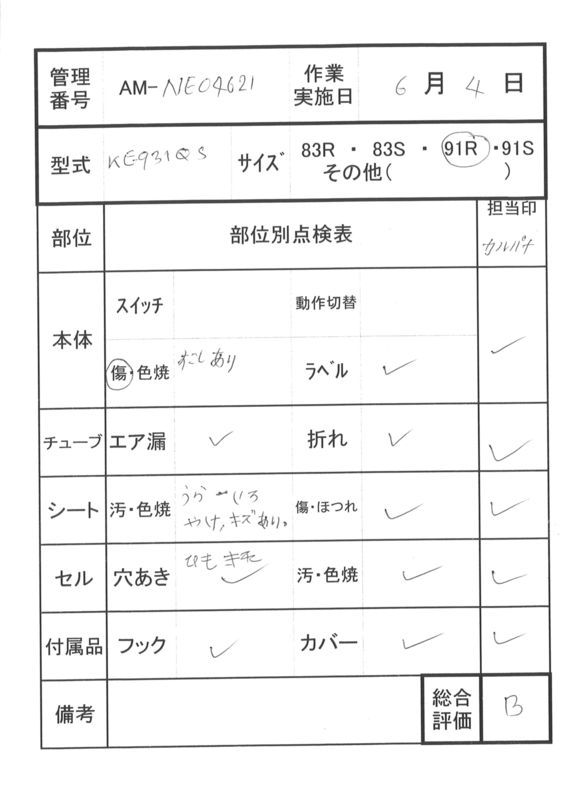 管理番号 AM-NE04621 作業実施日 6月4日
型式 KE931QS サイズ 83R・83S・91R・91S
その他( )
部位 部位別点検表 担当印
カルパナ
本体 スイッチ 動作切替
傷・色焼 すこしあり ラベル ✓ ✓
チューブ エア漏 ✓ 折れ ✓ ✓
シート 汚・色焼 うらーいろ
やけ,キズあり。 傷・ほつれ ✓ ✓
セル 穴あき ひも ✓ 汚・色焼 ✓ ✓
付属品 フック ✓ カバー ✓ ✓
備考 総合評価 B